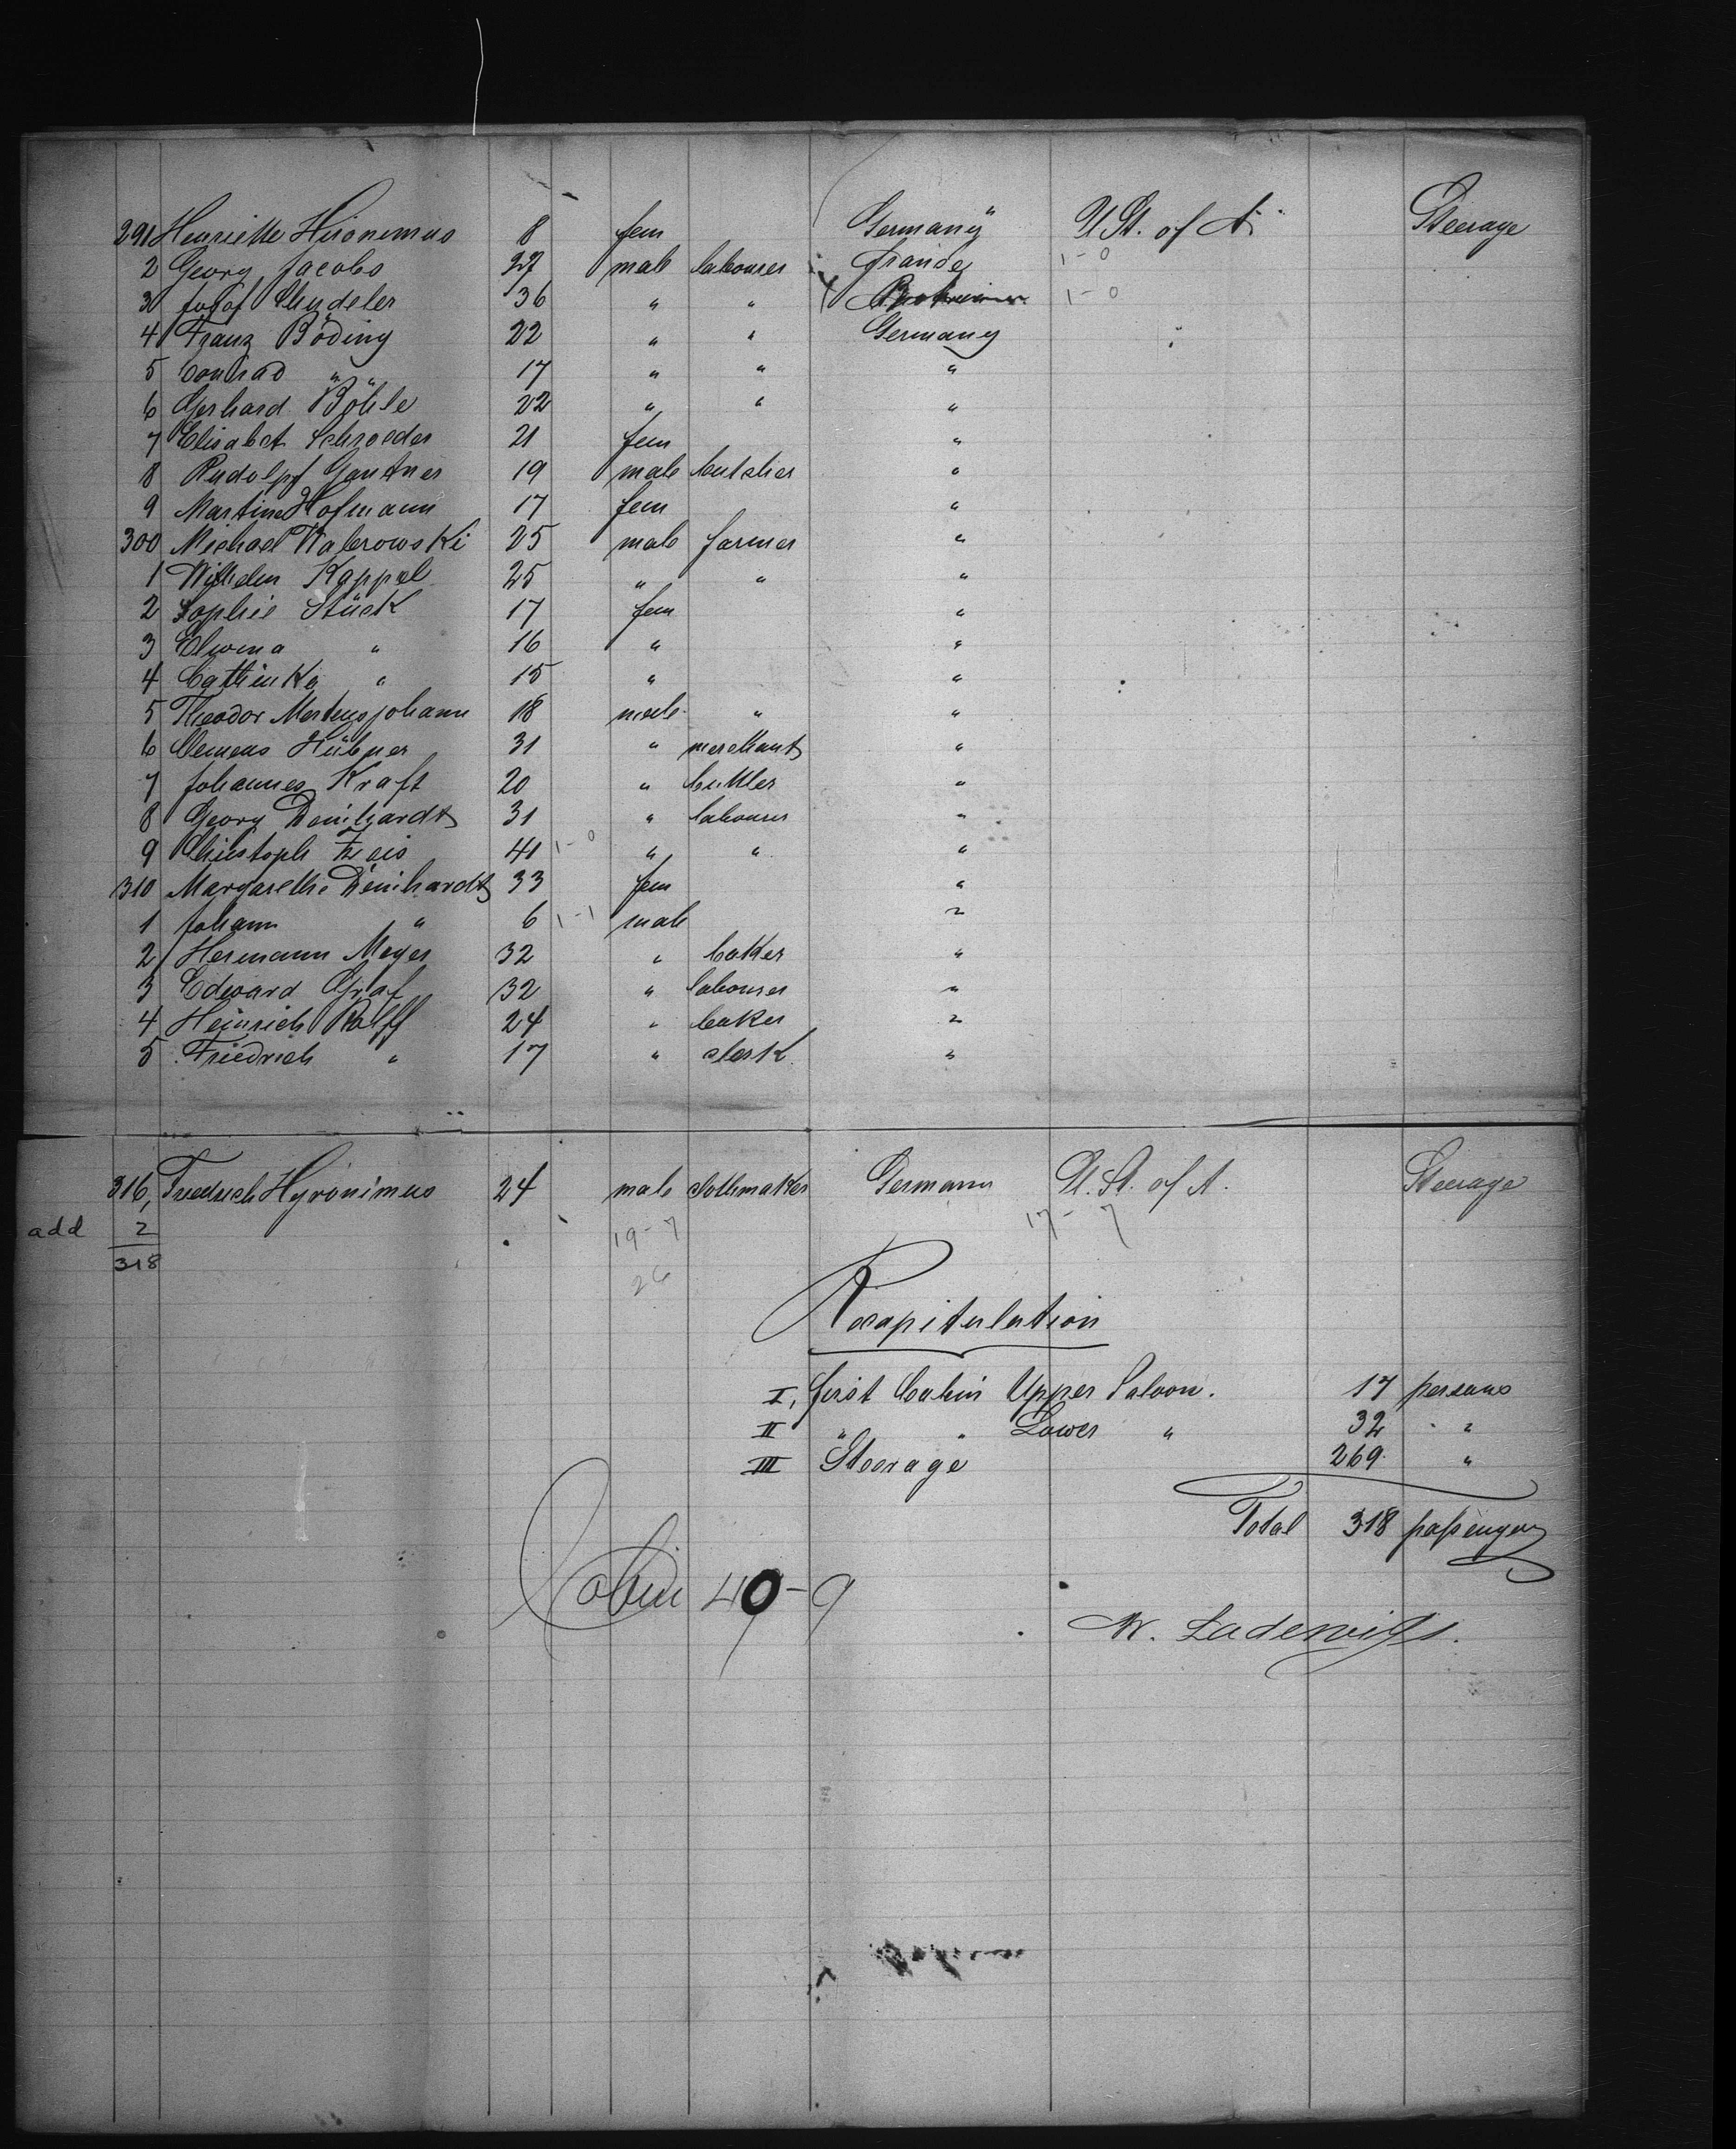 291 Henriette Hironemus 8 fem Germany U. St. of A. Steerage
2 Georg Jacobs 27 male labourer 1-0
3 Josef 36 " " 1-0
4 Franz Böding 22 " " Germany "
5 Conrad " 17 " " "
6 Gerhard Böhle 22 " " "
7 Elisabet Schroeder 21 fem "
8 Rudolpf Gantner 19 male butcher "
9 Martine Hofmann 17 fem "
300 Michael Wabrowski 25 male farmer "
1 Wilhelm Kappel 25 " " "
2 Sophie Stück 17 fem "
3 Elwina " 16 " "
4 Cathinka " 15 " "
5 Theodor Mertensjohann 18 male " "
6 Clemens Hübner 31 " merchant "
7 Johannes Kraft 20 " "
8 Georg Deinhardt 31 " labourer "
9 Christoph Zeis 41 1-0 " " "
310 Margarethe Deinhardt 33 fem "
1 Johann " 6 1-1 male "
2 Hermann Meyer 32 " baker "
3 Edward Graf 32 " labourer "
4 Heinrich Rolff 24 " baker "
5 Friedrich " 17 " clerk "
316, Friedrich Hyronimus 24 male clothmaker German U. St. of A. Steerage
add 2 19-7 17-7
318 26
Recapitulation
I, first Cabin Upper Saloon. 17 persons
II " " Lower " 32 "
III Steerage 269 "
Total 318 passengers
Cabin 40-9
W. Ladewigs.